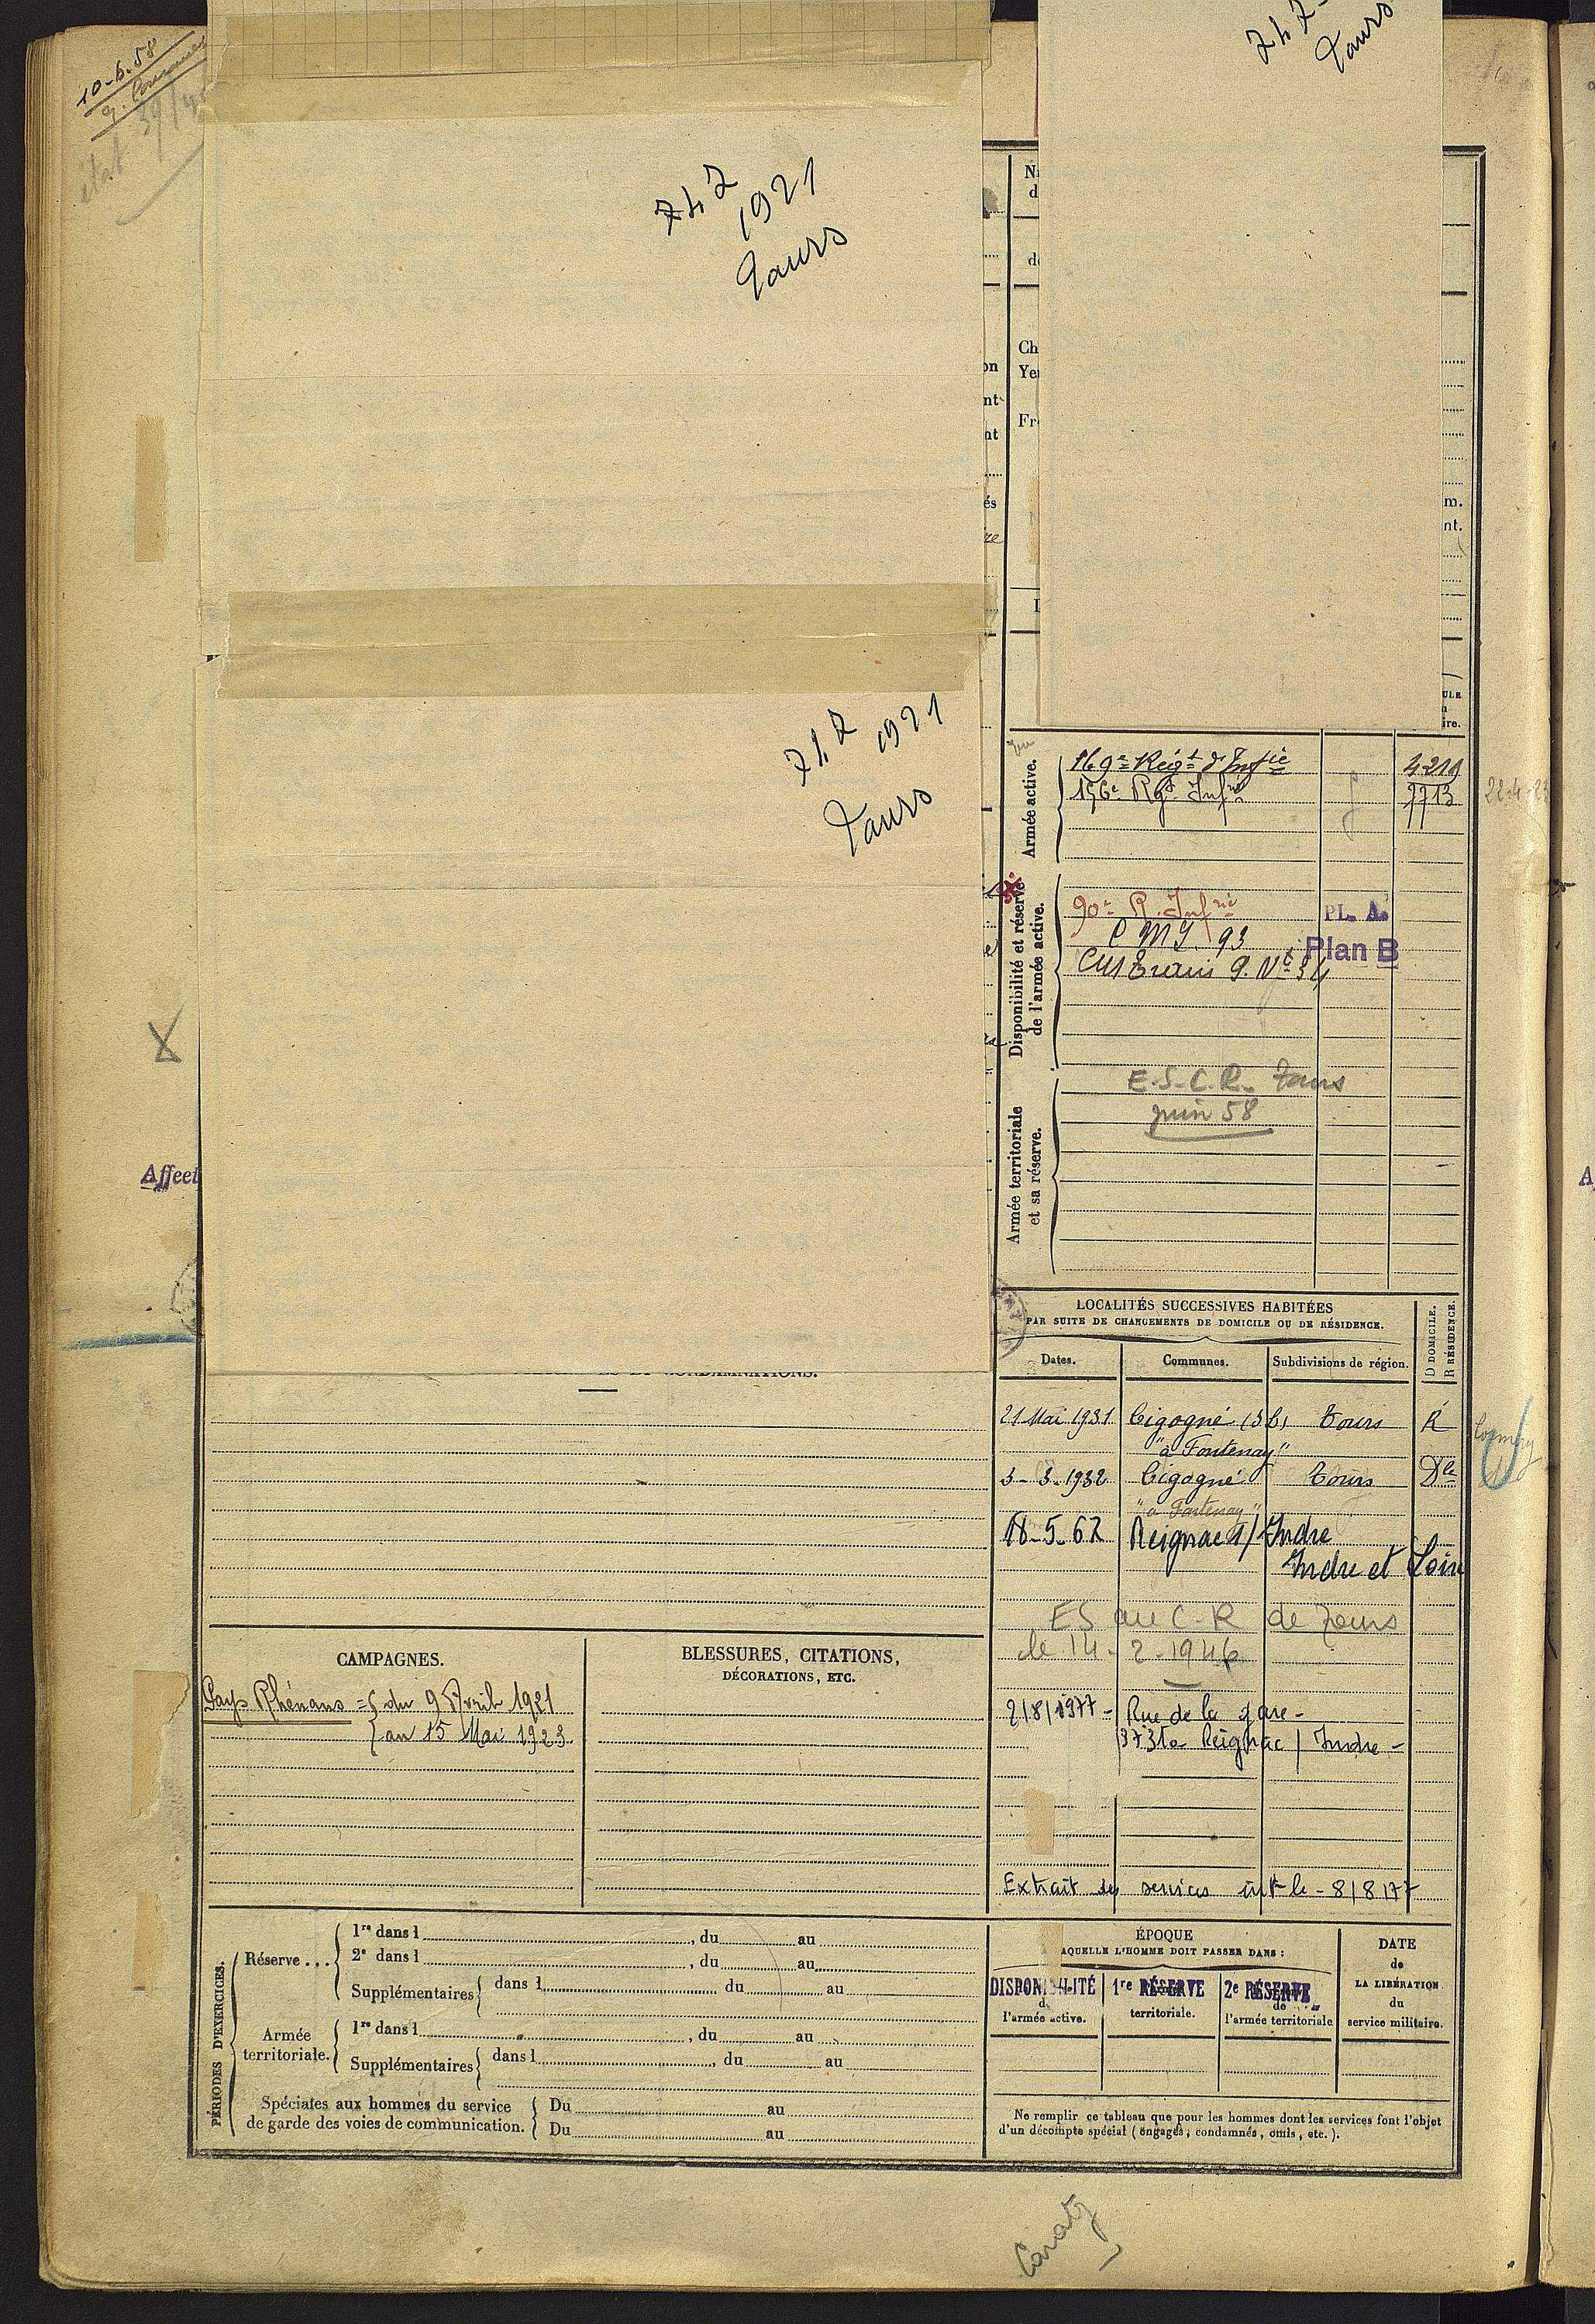 10-6-58
état 39/40
747
1921
Tours
747
Tours
717
1921
Tours
N
d
d
Ch
Yeu
Fr
on
nt
nt
és
re
m.
nt.
ULE
ire.
Armée active.
169e Régt d'Infie
4219
156e Rgt Infie
7713
22-4-23
Disponibilité et réserve
de l'armée active.
90e R. Infrie
PL. A.
C M I 93
Plan B
Armée territoriale
et sa réserve.
E.S.C.R. Tours
juin 58
Affect
LOCALITÉS SUCCESSIVES HABITÉES
PAR SUITE DE CHANGEMENTS DE DOMICILE OU DE RÉSIDENCE.
D DOMICILE.
R RÉSIDENCE.
Dates.
Communes.
Subdivisions de région.
21 Mai 1931
Cigogné
Tours
R
"à Fontenay"
3-3-1932
Cigogné
Tours
Dle
"à Fontenay"
18-5-67
Reignac s/ Indre
Indre et Loire
ES au C-R de Tours
le 14-2-1946
2/8/1977 - Rue de la gare -
37310 Reignac / Indre -
Extrait des services le - 8/8/77
CONDAMNATIONS.
CAMPAGNES.
Pays Rhénans = { du 9 Avril 1921
{ au 15 Mai 1923.
BLESSURES, CITATIONS,
DÉCORATIONS, ETC.
PÉRIODES D'EXERCICES.
Réserve ...
1re dans l , du au
2e dans l , du au
Supplémentaires { dans l du au
Armée
territoriale.
1re dans l , du au
Supplémentaires { dans l , du au
Spéciales aux hommes du service
de garde des voies de communication.
Du au
Du au
ÉPOQUE
AQUELLE L'HOMME DOIT PASSER DANS :
DISPONIBILITÉ
l'armée active.
1re RÉSERVE
territoriale.
2e RÉSERVE
de
l'armée territoriale
DATE
de
LA LIBÉRATION
du
service militaire.
Ne remplir ce tableau que pour les hommes dont les services font l'objet
d'un décompte spécial (engagés, condamnés, omis, etc.).